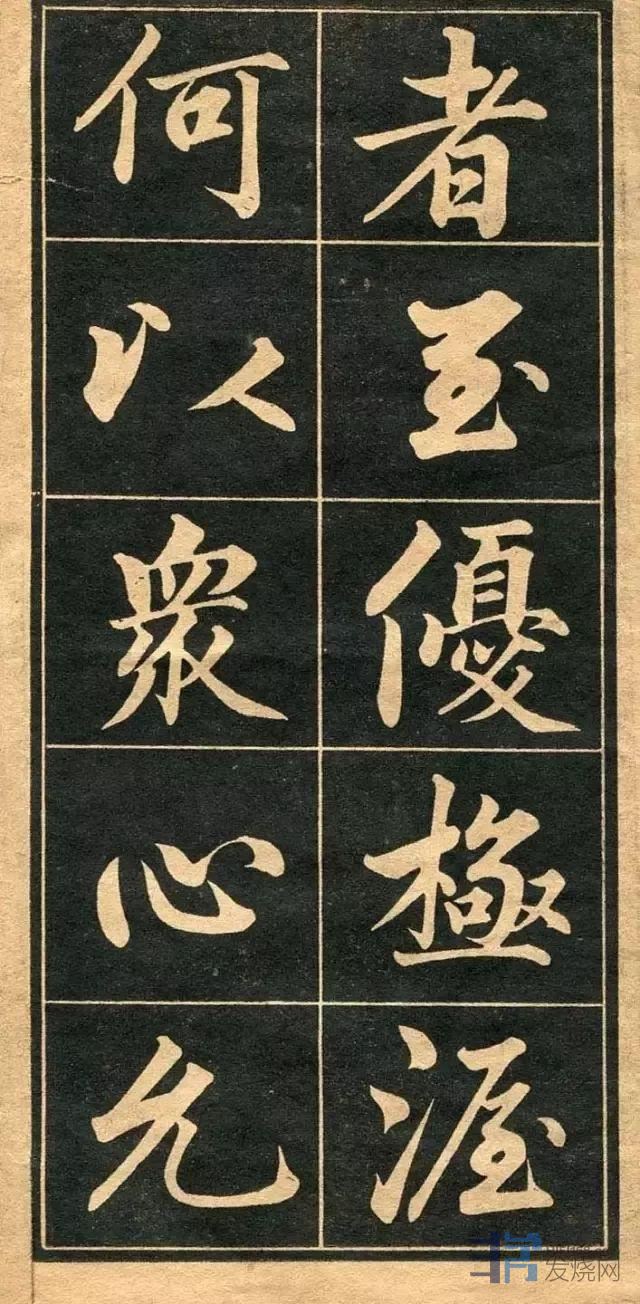 者至優極渥
何以衆心允
发烧网